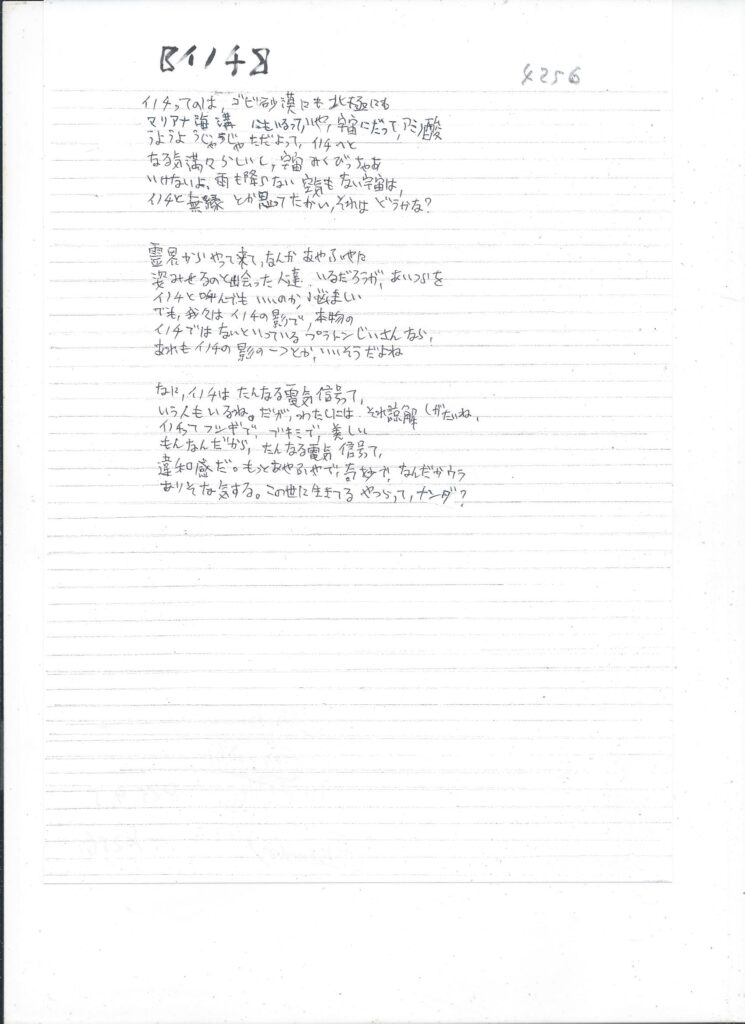 【イノチ】
4256
イノチってのは、ゴビ砂漠にも北極にも
マリアナ海溝にもいるって、いや、宇宙にだって、アミノ酸
うようようじゃうじゃただよって、イノチへと
なる気満々らしいし、宇宙みくびっちゃあ
いけないよ。雨も降らない空気もない宇宙は、
イノチと無縁とか思ってたかい、それはどうかな?
霊界からやって来て、なんかあやふやな
姿みせるのと出会った人達、いるだろうが、あいつらを
イノチと呼んでもいいのか、悩ましい
でも、我々はイノチの影で、本物の
イノチではないといっているプラトンじいさんなら、
あれもイノチの影の一つとか、いいそうだよね
なに、イノチはたんなる電気信号って、
いう人もいるね。だが、わたしにはそれ諒解しがたいね、
イノチってフシギで、ブキミで、美しい
もんなんだから、たんなる電気信号って、
違和感だ。もっとあやふやで、奇妙で、なんだかウラ
ありそな気する。この世に生きてるやつらって、ナンダ?